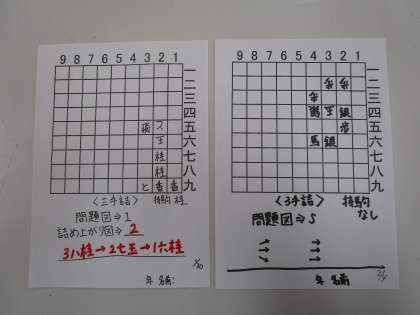 9 8 7 6 5 4 3 2 1
一
二
三
四
五
六
七
八
九
王
桂
桂
と 香 香
〈三手詰〉 持駒 桂
問題図⇒1
詰め上がり図⇒2
3八桂→2七玉→1六桂
年 名前:
9 8 7 6 5 4 3 2 1
一
二
三
四
五
六
七
八
九
歩 歩
歩
王 銀
馬 銀
〈3手詰〉 持駒
なし
問題図⇒S
年 名前